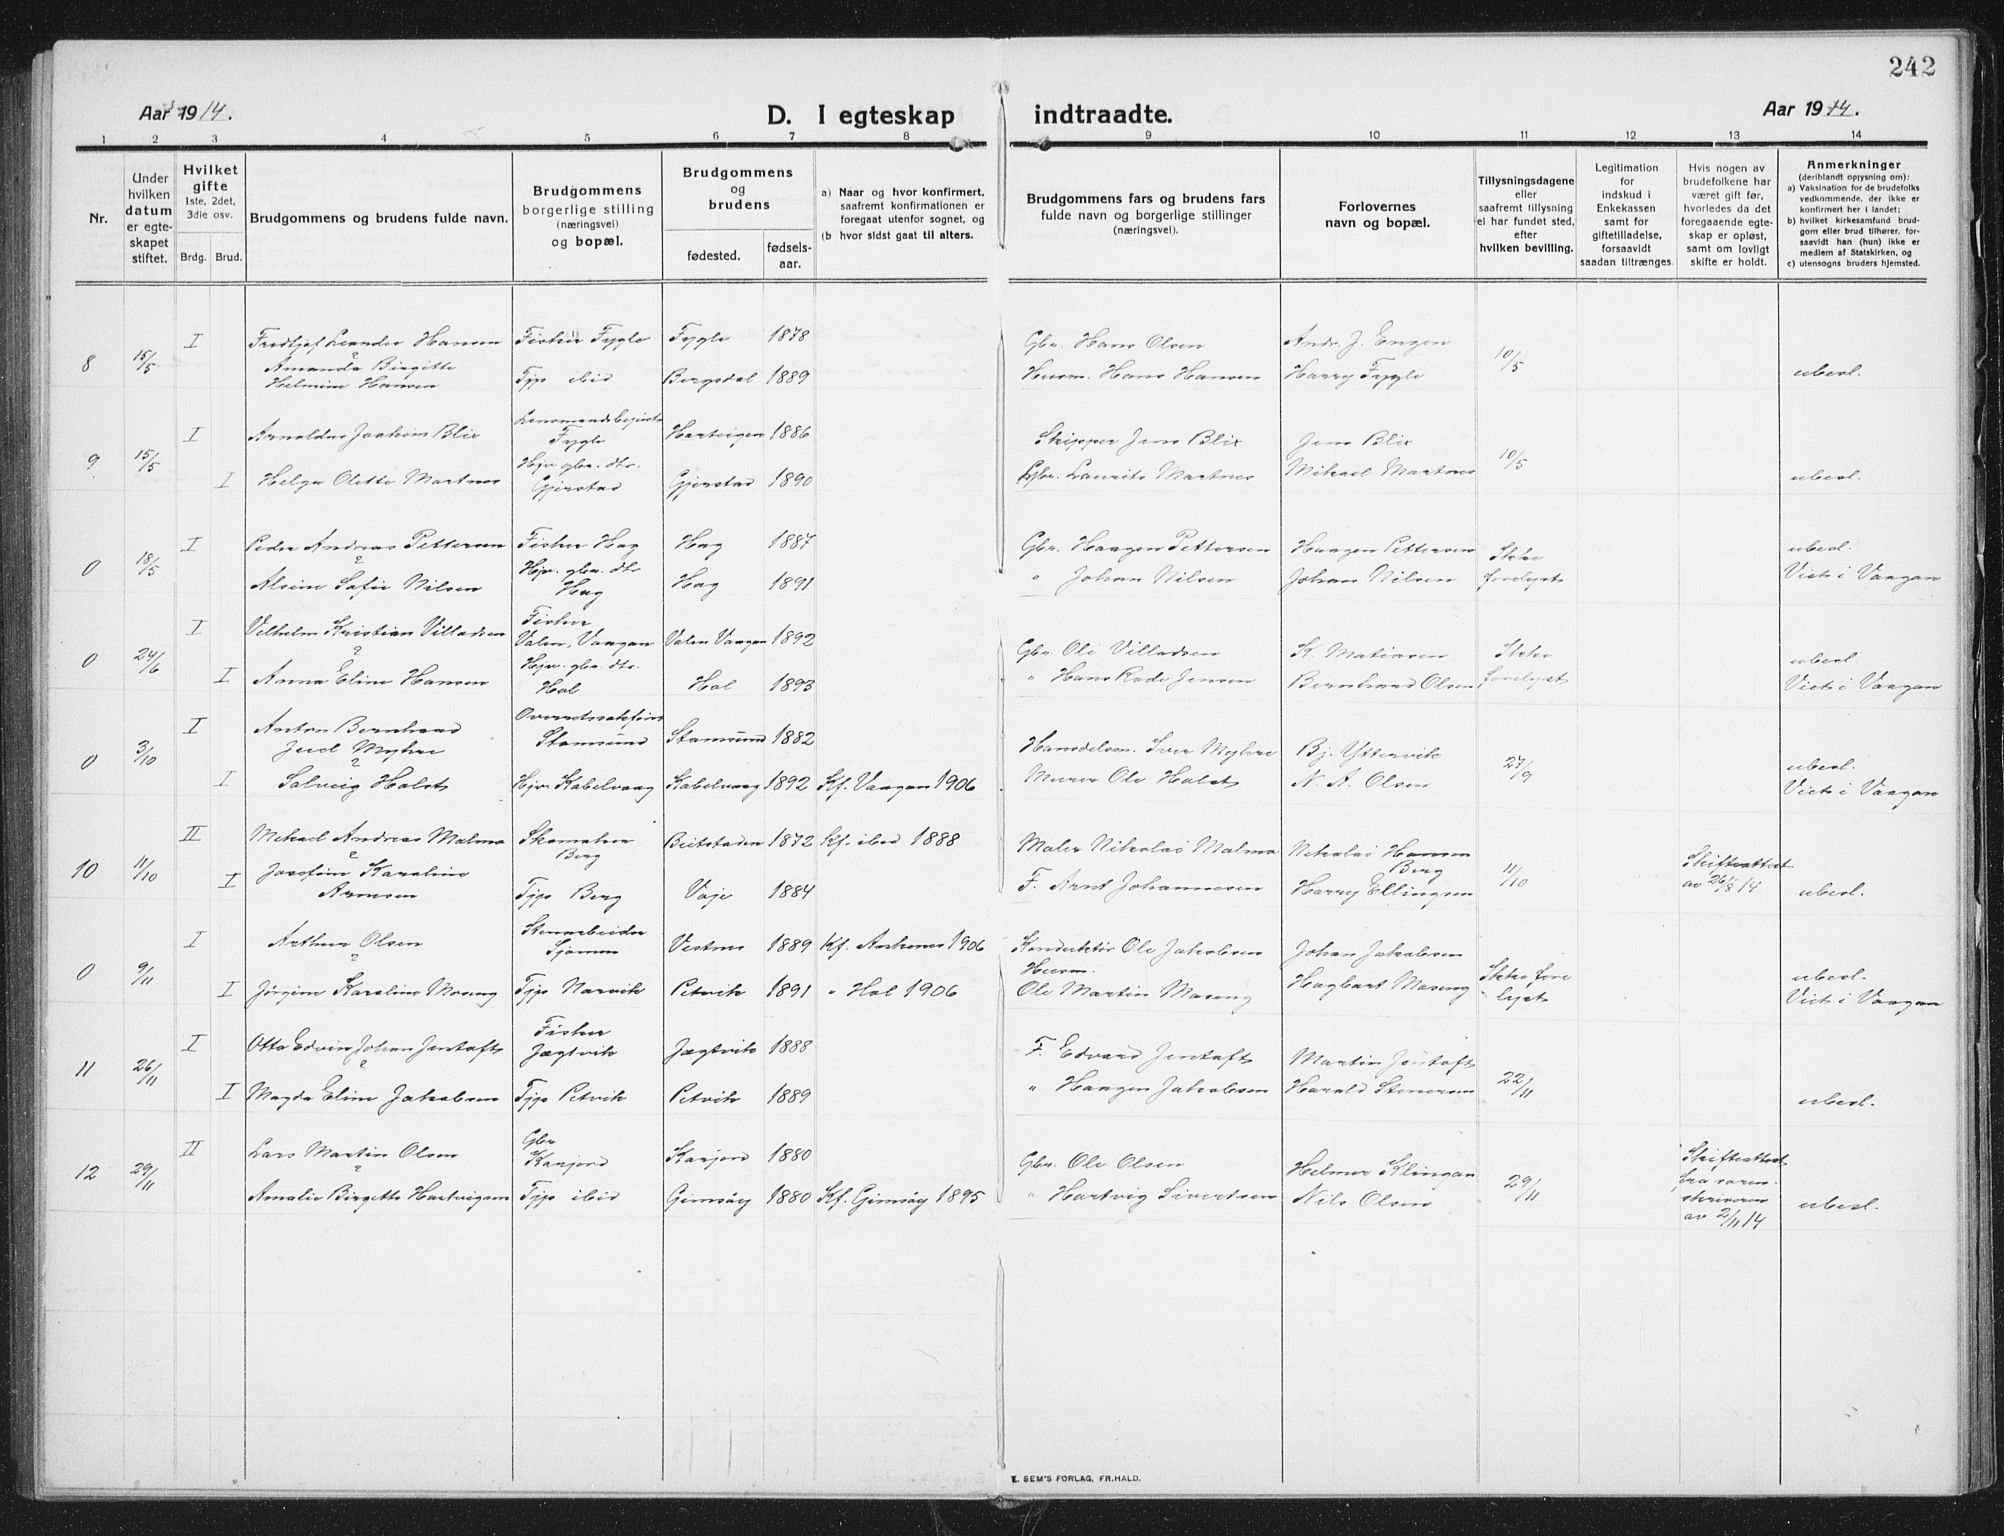 242
Aar 1914. D. I egteskap indtraadte. Aar 1914.
1 2 3 4 5 6 7 8 9 10 11 12 13 14
Nr.
Under hvilken datum er egteskapet stiftet.
Hvilket gifte 1ste, 2det, 3die osv.
Brdg. Brud.
Brudgommens og brudens fulde navn.
Brudgommens borgerlige stilling (næringsvei) og bopæl.
Brudgommens og brudens
fødested. fødselsaar.
a) Naar og hvor konfirmert, saafremt konfirmationen er foregaat utenfor sognet, og
(b hvor sidst gaat til alters.
Brudgommens fars og brudens fars fulde navn og borgerlige stillinger (næringsvei).
Forlovernes navn og bopæl.
Tillysningsdagene eller saafremt tillysning ei har fundet sted, efter hvilken bevilling.
Legitimation for indskud i Enkekassen samt for giftetilladelse, forsaavidt saadan tiltrænges.
Hvis nogen av brudefolkene har været gift før, hvorledes da det foregaaende egteskap er opløst, samt om lovligt skifte er holdt.
Anmerkninger (deriblandt opjysning om):
a) Vaksination for de brudefolks vedkommende, der ikke er konfirmert her i landet;
b) hvilket kirkesamfund brudgom eller brud tilhører, forsaavidt han (hun) ikke er medlem af Statskirken, og
c) utensogns bruders hjemsted.
8 15/5 I Fredtjof Leander Hansen Fisker Fygle Fygle 1878 Gbr. Hans Olsen Andr. J. Engen 10/5
Amanda Birgitte Helmine Hansen Tjp ibid Borgsdal 1889 Husm. Hans Hansen Harry Fygle ubesl.
9 15/5 I Arnoldus Joakim Blix Fygle 1886 Skipper Jens Blix Jens Blix 10/5
I Helga Olette Martnes Hjv. gbr. dtr. Gjerstad Gjerstad 1890 Gbr. Laurits Martnes Mikael Martnes ubesl.
0 18/5 I Peder Andreas Pettersen Fisker Hag Hag 1887 Gbr. Haagen Pettersen Haagen Pettersen Ikke forelyst ubesl.
Alvine Sofie Nilsen Hjv. gbr. dtr Hag Hag 1891 " Johan Nilsen Johan Nilsen Viet i Vaagan
0 24/6 I Vilhelm Kristian Villadsen Fisker Valen, Vaagan Valen Vaagan 1892 Gbr. Ole Villadsen K. Matiasen Ikke forelyst ubesl.
I Anna Eline Hansen Hjv. gbr. dtr. Hol Hol 1893 " Hans Rade Jensen Bernhard Olsen Viet i Vaagan
0 3/10 I Anton Bernhard Juel Myhre Stamsund Stamsund 1882 Handelsm. Iver Myhre Bj. Yttervik 27/9 ubesl.
I Solveig Holst Hjv. Kabelvaag Kabelvaag 1892 Kf. Vaagan 1906 Murer Ole Holst N. A. Olsen Viet i Vaagan
10 11/10 II Mikael Andreas Malmo Skomaker Berg Beitstaden 1872 Kf. ibid 1888 Maler Nikolai Malmo Nikolai Hansen Berg 11/10 Skifteattest av 26/8 14
I Josefine Karoline Arnesen Tjp Berg Voje 1884 F. Arnt Johannesen Harry Ellingsen ubesl.
0 9/11 I Arthur Olsen Vestnes 1889 Kf. Ankenes 1906 Konduktør Ole Jakobsen Johan Jakobsen Ikke forelyst ubesl.
I Jørgine Karoline Moseng Tjp Narvik Petvik 1891 " Hol 1906 Husm. Ole Martin Moseng Hagbart Moseng Viet i Vaagan
11 26/11 I Otto Edvin Johan Jentoft Fisker Jægtvik Jægtvik 1888 F. Edvard Jentoft Martin Jentoft 22/11
I Magda Eline Jakobsen Tjp Petvik Petvik 1889 " Haagen Jakobsen Harald Stenersen ubesl.
12 29/11 II Lars Martin Olsen Gbr Kanjord Kanjord 1880 Gbr. Ole Olsen Helmer Klingan 29/11 Skifteattest fra sorenskriveren av 2/11 14
Amalie Birgitte Hartvigsen Tjp ibid Gimsøy 1880 Kf. Gimsøy 1895 " Hartvig Sivertsen Nils Olsen ubesl.
E. SEM'S FORLAG, FR.HALD.